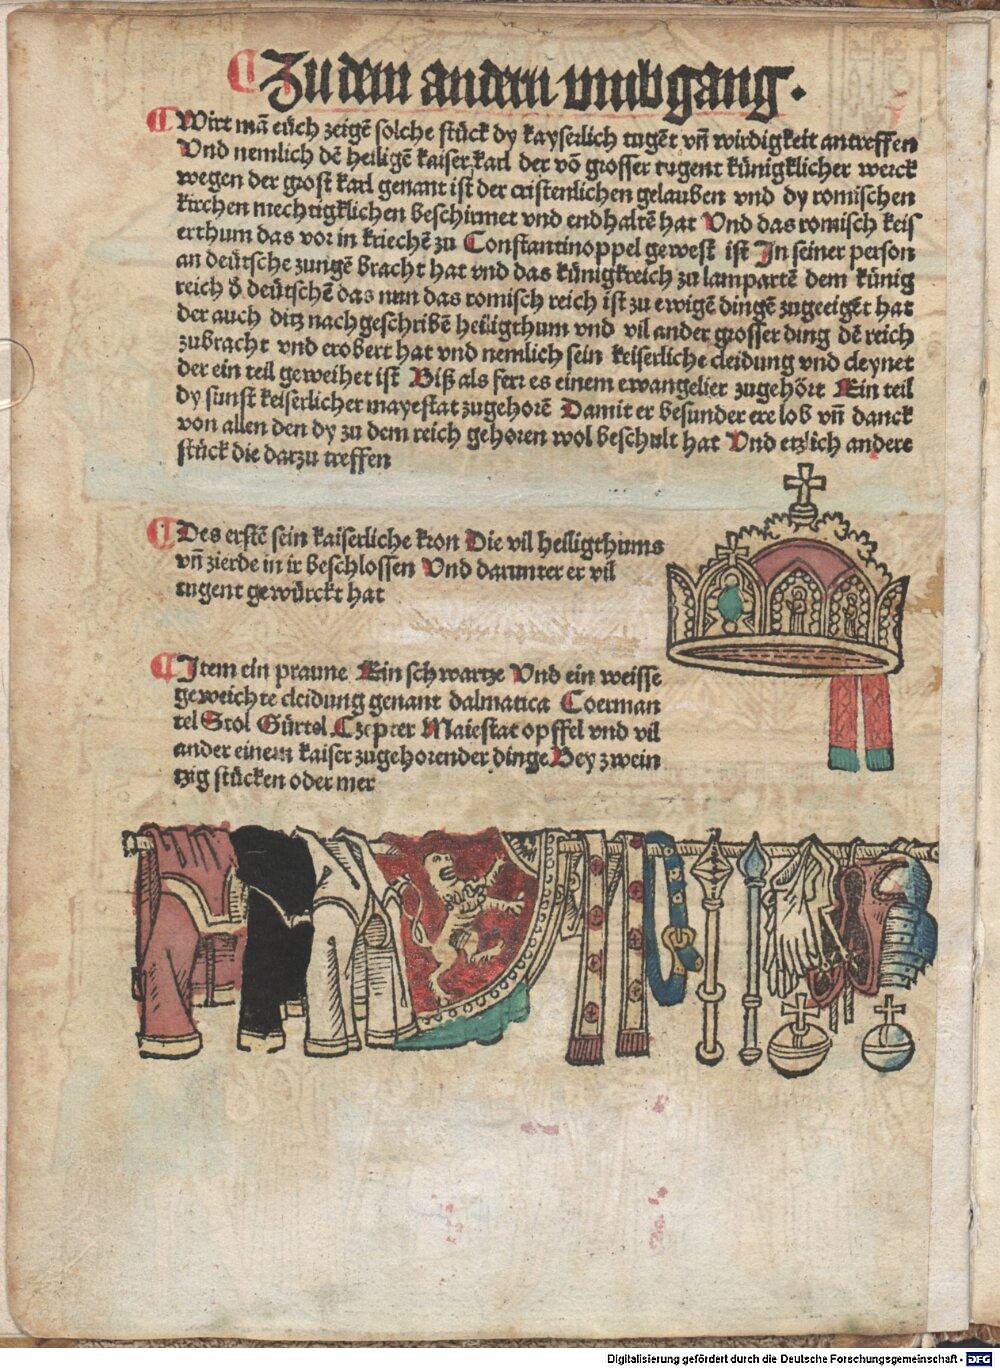 Zu dem andern vmbgang.
Wirt mā eüch zeigē solche stück dy kayserlich tugēt vn̄ wirdigkeit antreffen
Vnd nemlich dē heiligē kaiser karl der vō grosser tugent künigklicher werck
wegen der grost karl genant ist der cristenlichen gelauben vnd dy romischen
kirchen mechtigklichen beschirmet vnd endhaltē hat Vnd das romisch keis
erthum das vor in kriechē zu Constantinoppel gewest ist In seiner person
an deütsche zungē bracht hat vnd das künigkreich zu lampartē dem künig
reich d̄ deütschē das nun das romisch reich ist zu ewigē dingē zugeeigēt hat
der auch ditz nachgeschribē heiligthum vnd vil ander grosser ding dē reich
zubracht vnd erobert hat vnd nemlich sein keiserliche cleidung vnd cleynet
der ein teil geweihet ist Biß als ferr es einem ewangelier zugehört Ein teil
dy sunst keiserlicher mayestat zugehorē Damit er besunder ere lob vn̄ danck
von allen den dy zu dem reich gehoren wol beschult hat Vnd etzlich andere
stück die darzu treffen
Des erstē sein kaiserliche kron Die vil heiligthums
vn̄ zierde in ir beschlossen Vnd darunter er vil
tugent gewürckt hat
Item ein praune Ein schwartze Vnd ein weisse
geweichte cleidung genant dalmatica Coerman
tel Stol Gürtel Czepter Maiestat opffel vnd vil
ander einem kaiser zugehorender dinge Bey zwein
tzig stücken oder mer
Digitalisierung gefördert durch die Deutsche Forschungsgemeinschaft - DFG